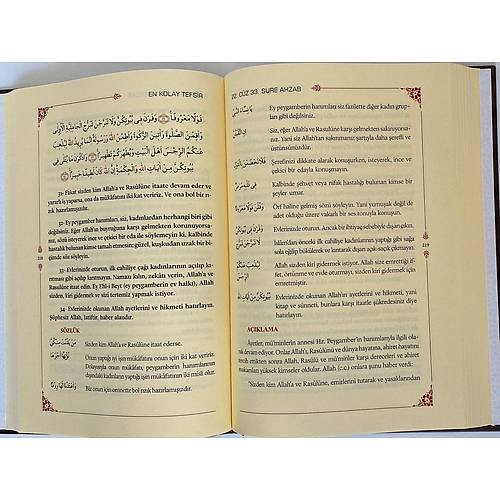 EN KOLAY TEFSİR
قَوْلًا مَعْرُوفًا وَقَرْنَ فِي بُيُوتِكُنَّ وَلَا تَبَرَّجْنَ تَبَرُّجَ الْجَاهِلِيَّةِ الْأُولَىٰ
وَأَقِمْنَ الصَّلَوةَ وَآتِينَ الزَّكَوةَ وَأَطِعْنَ اللَّهَ وَرَسُولَهُ إِنَّمَا يُرِيدُ اللَّهُ لِيُذْهِبَ
عَنْكُمُ الرِّجْسَ أَهْلَ الْبَيْتِ وَيُطَهِّرَكُمْ تَطْهِيرًا وَاذْكُرْنَ مَا يُتْلَىٰ فِي
بُيُوتِكُنَّ مِنْ آيَاتِ اللَّهِ وَالْحِكْمَةِ إِنَّ اللَّهَ كَانَ لَطِيفًا خَبِيرًا
31- Fakat sizden kim Allah'a ve Rasûlüne itaate devam eder ve
yararlı iş yaparsa, onun mükâfatını iki kat veririz. Ve ona bol bir rı-
zık hazırlamışızdır.
32- Ey peygamber hanımları, siz, kadınlardan herhangi biri gibi
değilsiniz. Eğer Allah'ın buyruğuna karşı gelmekten korunuyorsa-
nız, sözü ince ve çekici bir eda ile söylemeyin ki, kalbinde
hastalık bulunan kimse tamah etmesin; güzel, kuşkudan uzak bir bi-
çimde söz söyleyin.
33- Evlerinizde oturun, ilk cahiliye çağı kadınlarının açılıp kı-
rıtması gibi açılıp kırıtmayın. Namazı kılın, zekâtı verin, Allah'a ve
Rasûlüne itaat edin. Ey Ehl-i Beyt (ey peygamberin ev halkı), Allah
sizden, kiri gidermek ve sizi tertemiz yapmak istiyor.
34- Evlerinizde okunan Allah ayetlerini ve hikmeti hatırlayın.
Şüphesiz Allah, latiftir, haber alandır.
SÖZLÜK
Sizden kim Allah'a ve Rasûlüne itaat ederse.
Onun yaptığı iyi işin mükâfatını onun için iki kat veririz.
Dolayısıyla onun mükâfatı, peygamberin hanımlarının
dışındaki kadınların yaptığı işin mükâfatının iki misli olur.
Biz onun için cennette bol rızık hazırlamışızdır.
218
22. CÜZ 33. SURE AHZAB
Ey peygamberin hanımları siz fazilette diğer kadın grup-
ları gibi değilsiniz.
Siz, eğer Allah'a ve Rasulüne karşı gelmekten sakınıyorsa-
nız. Yani siz Allah'tan sakınmanız şartıyla daha şerefli ve
üstünsünüzdür.
Şerefinizi dikkate alarak konuşurken, isteyerek, ince ve
çekici bir edayla konuşmayın.
Kalbinde şehvet veya nifak hastalığı bulunan kimse bir
şey umar.
Örf haline gelmiş sözü söyleyin. Yani yumuşak değil de
adet olduğu üzere vakarlı bir ses tonuyla konuşun.
Evlerinizde oturun. Ancak bir ihtiyaç sebebiyle dışarı çıkın.
İslâm'dan önceki ilk cahiliye kadınlarının yaptığı gibi sağa
sola eğilip bükülerek ve kırıtarak dışarı açık-saçık çıkmayın.
Allah sizden kiri gidermek istiyor. Allah size emrettiği if-
fet, örtünme ve evde oturmayı, sizden kiri gidermek için
emretmiştir.
Evlerinizde okunan Allah'ın ayetlerini ve hikmeti, yani
kitap ve sünneti, bunlara karşı itaatle şükredesiniz diye
hatırlayın.
AÇIKLAMA
Ayetler, mü'minlerin annesi Hz. Peygamber'in hanımlarıyla ilgili ola-
rak devam ediyor. Onlar Allah'ı, Rasûlünü ve dünya hayatına, ahiret hayatını
tercih ettikten sonra Allah, Rasûlü ve mü'minler karşı dereceleri ve ahiret
makamları yüksek kimseler oldular. Allah (c.c.) onlara şunu haber verdi:
"Sizden kim Allah'a ve Rasûlüne, emirlerini tutarak ve yasaklarından
219